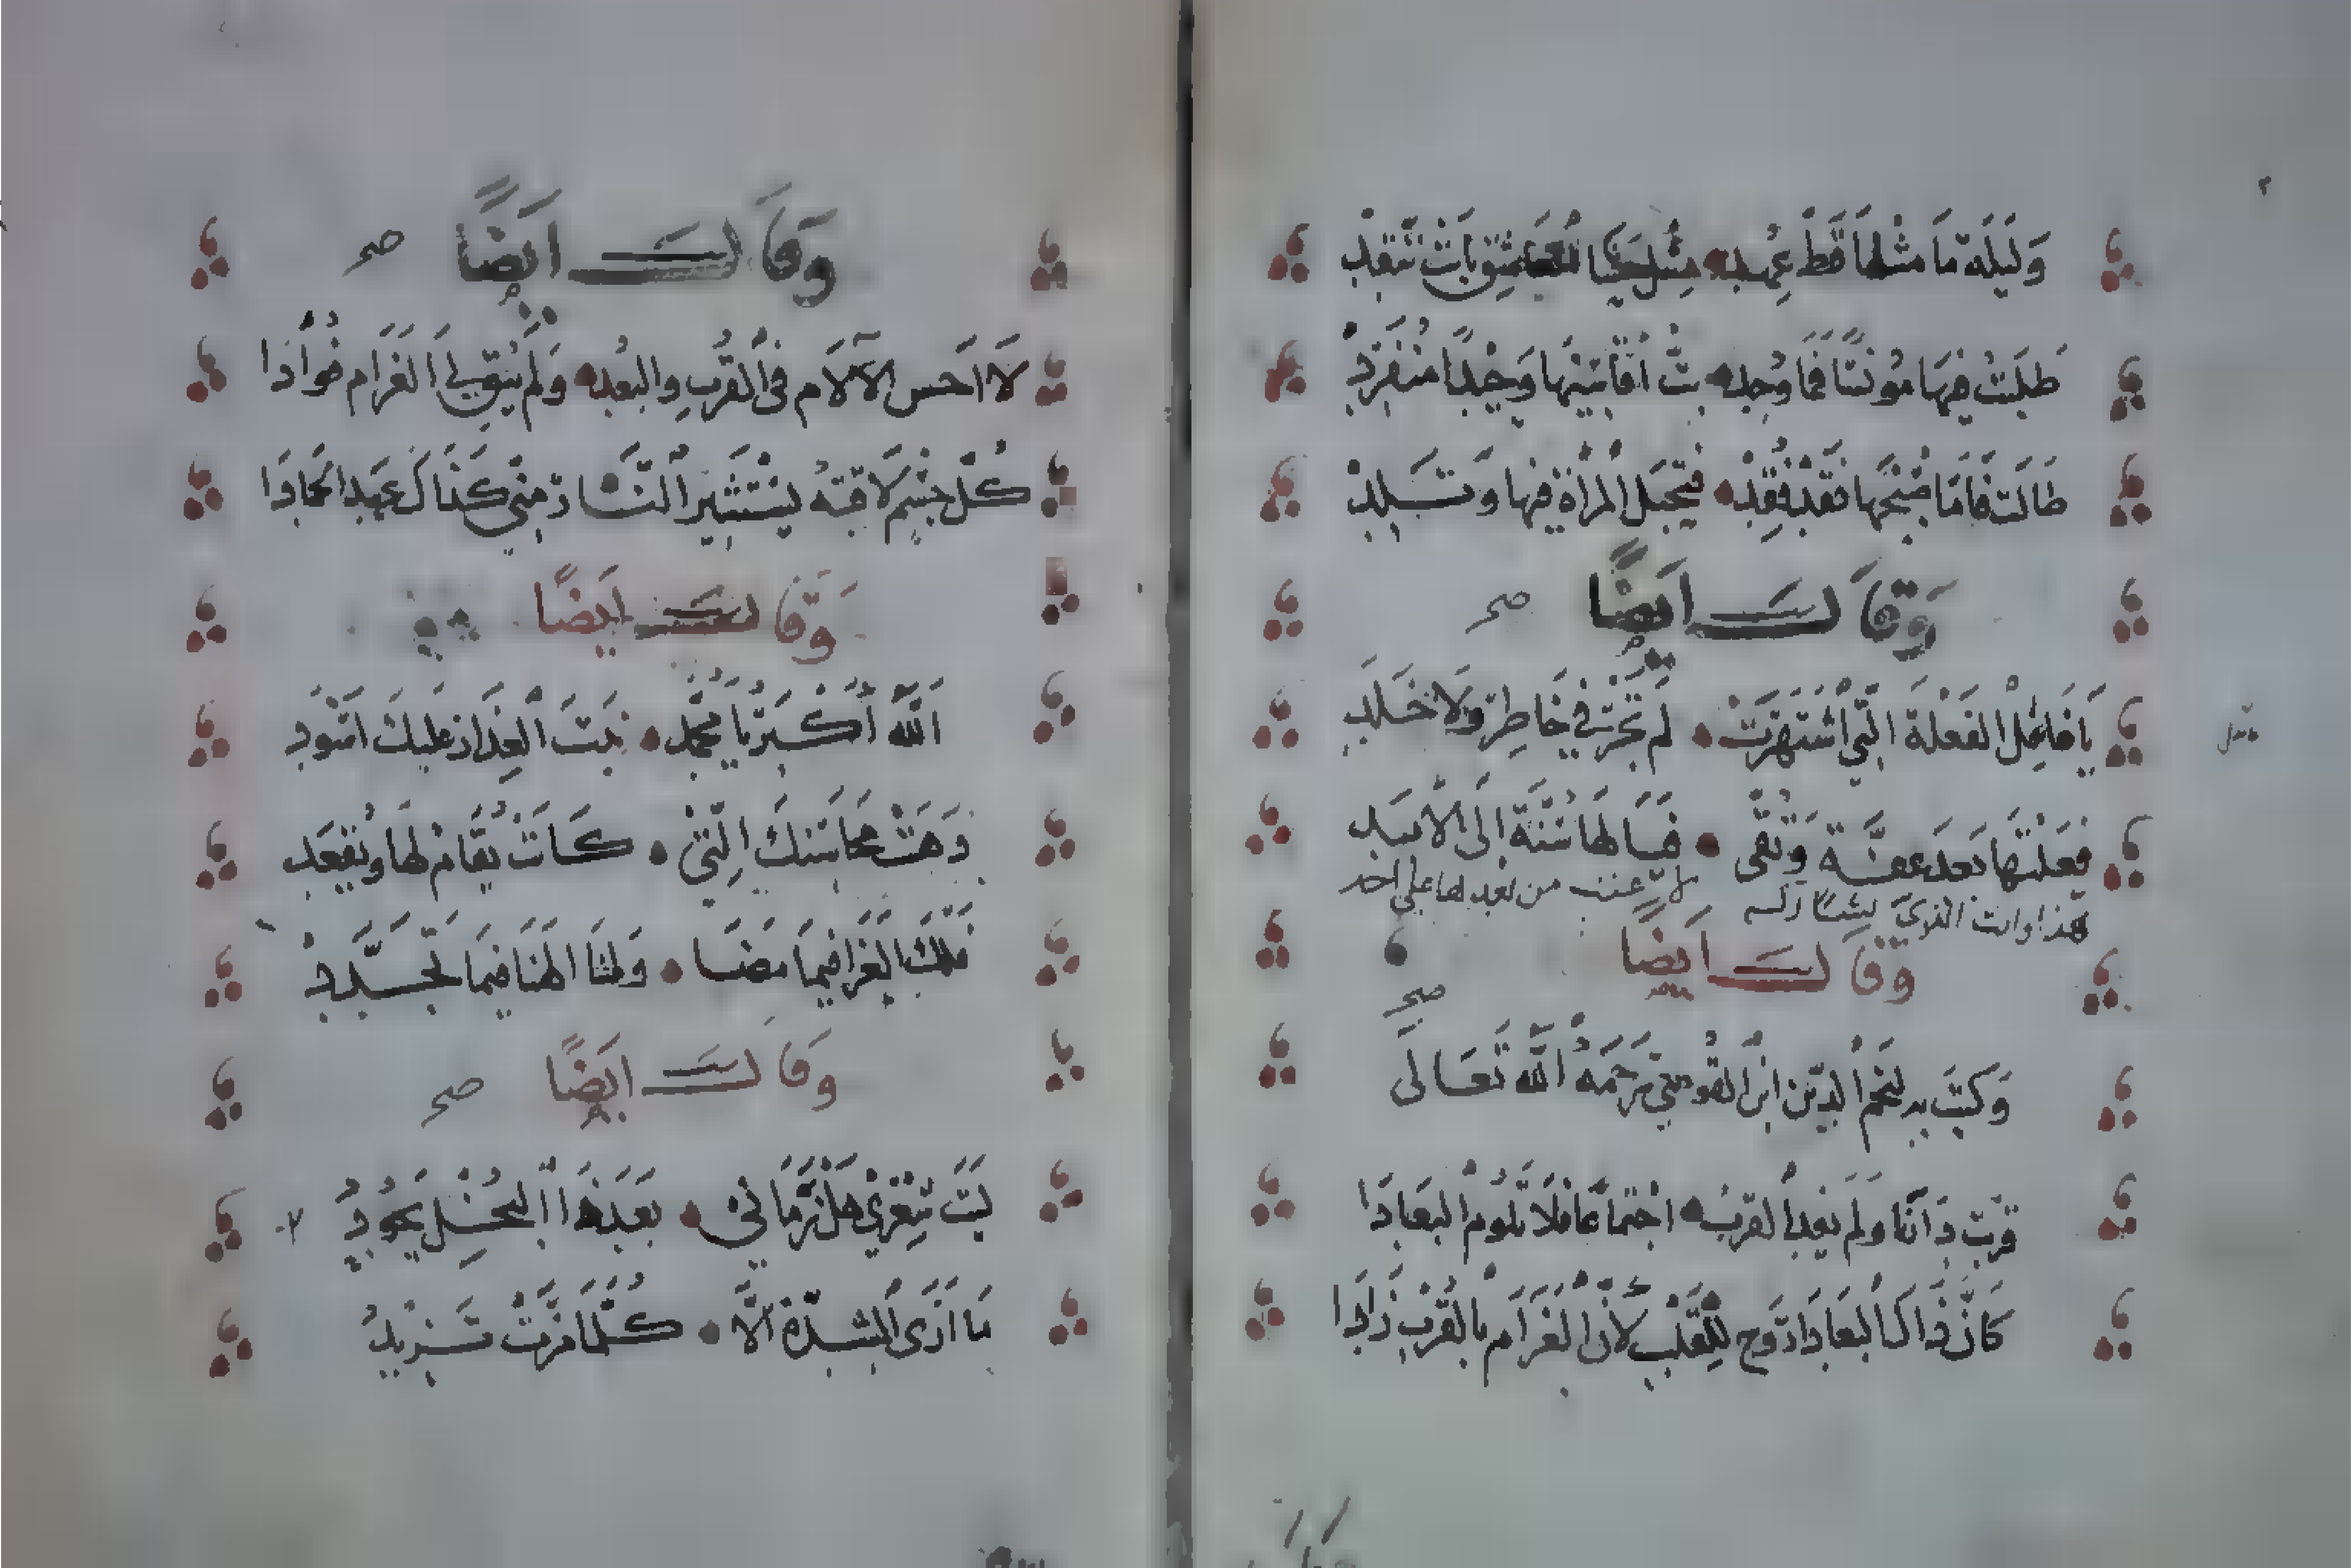 وَلَيْلَة مَا مثْلهَا قَطْ عُهِد مِثْل حَشَا بَاتْ تَتقِدْ
طَلَبْتُ فِيهَا مُونسًا فَمَا وُجِد بتُّ اُقَاسِيْهَا وَحِيْدًا مُنفَرِدْ
طَالَت فَاَمَّا صُبْحُهَا فَقَدْ فُقِدْ فتحبل المرأة فيها وَتَلِدْ
وَقَالَ اَيضًا صح
يَا فَاعِلْ الفَعْلَةَ الَّتِي اُشْتَهَرَتْ لَم تَجْرِ فِي خَاطِرٍ وَلَا خَلَدِ
فَعَلْتَهَا بَعدَ عِفَّة وَتُقَى فيَا لَهَا سُنَّةً اِلَى الاَبَدِ
هذا وانت الذي لا عتب من بعدها على احد
وَقَالَ اَيضًا
صح
وَكتبَ بهِ لنَجْم الدِّين ابْن رَحِمَهُ اللَّه تَعَالَى
قرُبت دَارنَا وَلَم يفد القربُ اجْتمَاعًا فَلَا نلُومُ البعَادَا
كَانَ ذَاكَ البعَادُ اَرْوح لِلْقَلْبِ لأنَّ الغَرَام بالقُرْبِ زَادَا
وَقَالَ اَيضًا صح
لَا اَحس الآلَام فِي القُرْبِ وَالبُعْد وَلَم يُبْقِ لِي الغَرَام فُوَادَا
كُلُّ جِسْم لَاقيته يَسْتَثِير النَّار مِنّي كَذَا عَهد الجمَادَا
وَقَالَ اَيضًا
اَللَّه اَكْبَر يَا مُحَمَّد نبَتَ العِذَار عليكَ اَسْوَد
ذَهَبَتْ مَحَاسنكَ الَّتِي كَانَتْ يُقَامُ لَهَا وَيُقعَد
فَلَكَ العَزَا فِيمَا مَضَا وَلَنَا الهَنَا فِيمَا تَجَدَّدْ
وَقَالَ اَيضًا صح
لَيْتَ شِعْرِي هَلْ زَمَانِي بَعْدَ هَذَا البُخْلِ يَجُودُ
مَا اَرَى الشِّدَّة اِلَّا كُلَّمَا مَرَّتْ تَزِيدُ